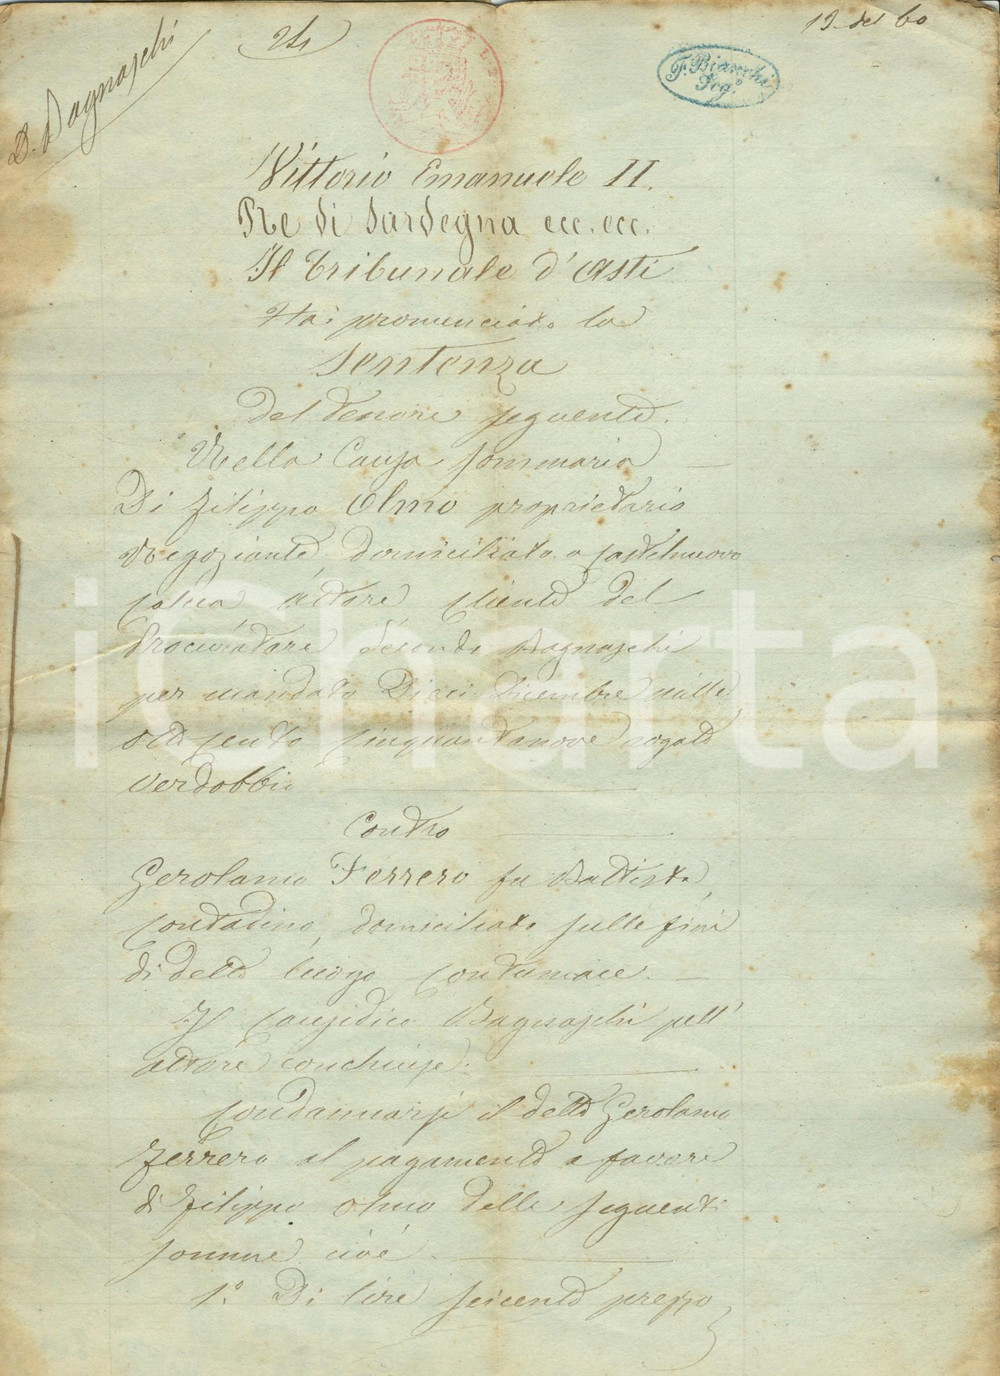 19. del 60
D. Bagnaschi
F. Bianchi
Seg.º
Vittorio Emanuele II.
Re di Sardegna ecc. ecc.
Il Tribunale d'Asti
Ha pronunciato la
Sentenza
Del tenore seguente.
Nella Causa sommaria
Di Filippo Olmo proprietario
Negoziante, domiciliato a Castelnuovo
Calcea attore, cliente del
Procuratore Secondo Bagnaschi
per mandato Dieci Dicembre mille
otto cento cinquantanove rogato
Verdobbio
Contro
Gerolamo Ferrero fu Battista,
contadino, domiciliato sulle fini
di detto luogo contumace.
Il Causidico Bagnaschi pell'
attore conchiuse.
Condannarsi il detto Gerolamo
Ferrero al pagamento a favore
di Filippo Olmo delle seguenti
somme cioè
1.º Di lire seicento prezzo
iCharta